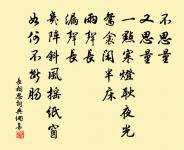 不思量
又思量
一點寒燈耿夜光
鴛衾閑半床
雨聲長
漏聲長
幾陣斜風搖紙窗
如何不斷腸
長相思